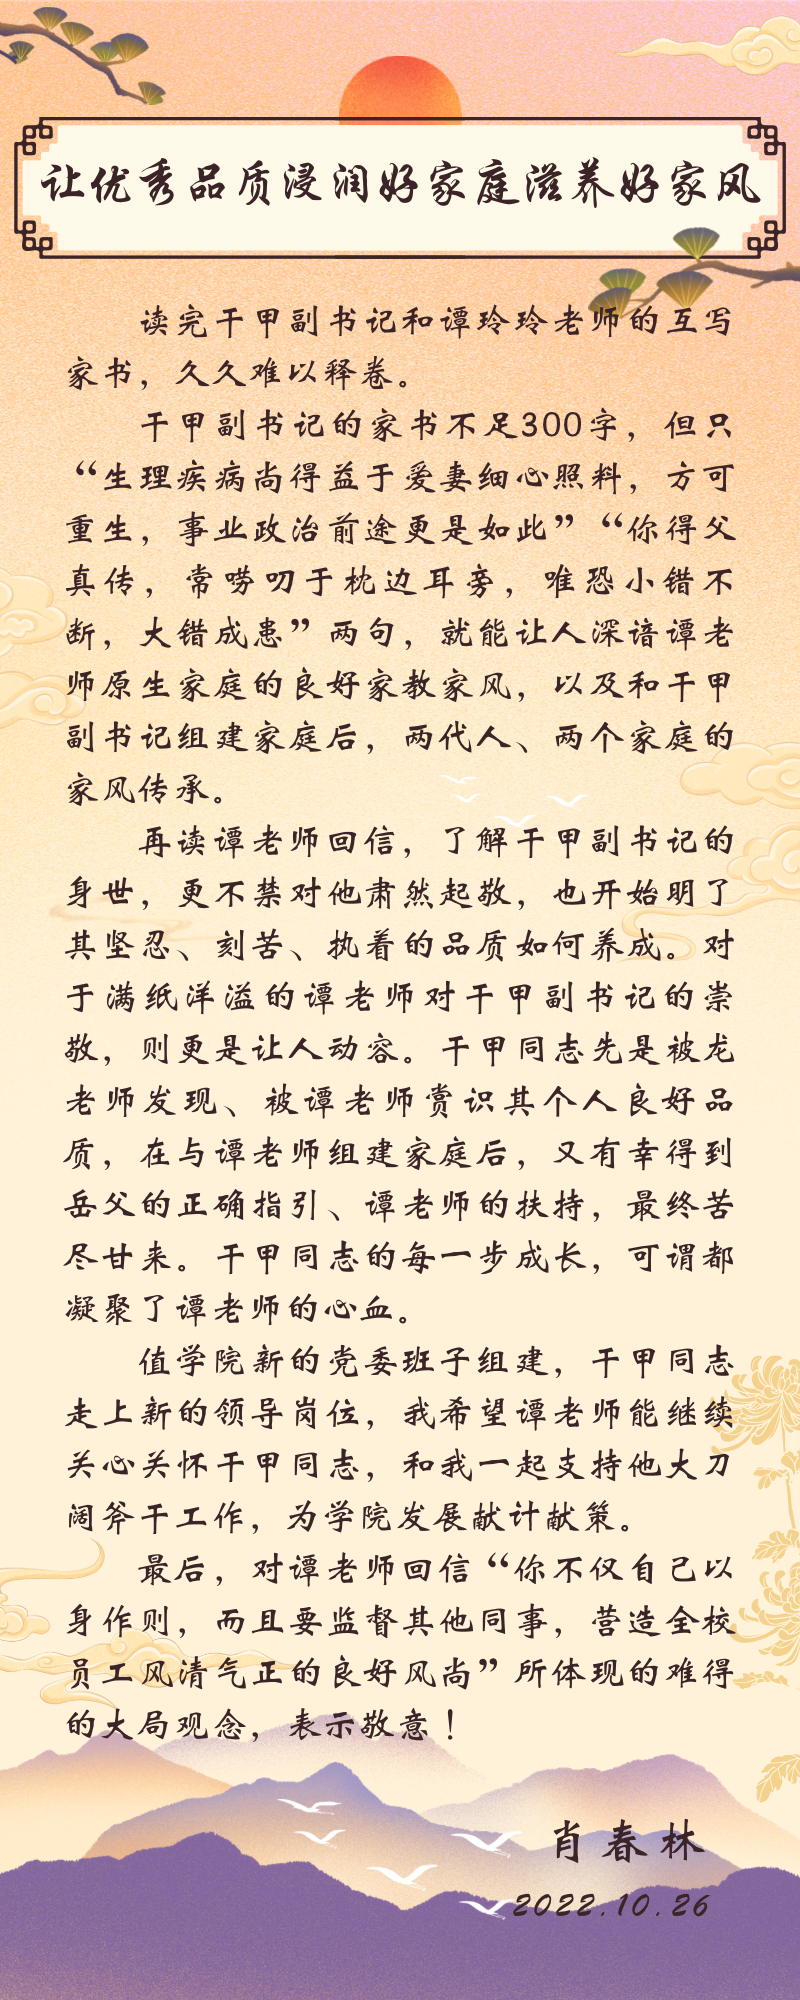 让优秀品质浸润好家庭滋养好家风
读完干甲副书记和谭玲玲老师的互写
家书，久久难以释卷。
干甲副书记的家书不足300字，但只
“生理疾病尚得益于爱妻细心照料，方可
重生，事业政治前途更是如此”“你得父
真传，常唠叨于枕边耳旁，唯恐小错不
断，大错成患”两句，就能让人深谙谭老
师原生家庭的良好家教家风，以及和干甲
副书记组建家庭后，两代人、两个家庭的
家风传承。
再读谭老师回信，了解干甲副书记的
身世，更不禁对他肃然起敬，也开始明了
其坚忍、刻苦、执着的品质如何养成。对
于满纸洋溢的谭老师对干甲副书记的崇
敬，则更是让人动容。干甲同志先是被龙
老师发现、被谭老师赏识其个人良好品
质，在与谭老师组建家庭后，又有幸得到
岳父的正确指引、谭老师的扶持，最终苦
尽甘来。干甲同志的每一步成长，可谓都
凝聚了谭老师的心血。
值学院新的党委班子组建，干甲同志
走上新的领导岗位，我希望谭老师能继续
关心关怀干甲同志，和我一起支持他大刀
阔斧干工作，为学院发展献计献策。
最后，对谭老师回信“你不仅自己以
身作则，而且要监督其他同事，营造全校
员工风清气正的良好风尚”所体现的难得
的大局观念，表示敬意！
肖春林
2022.10.26